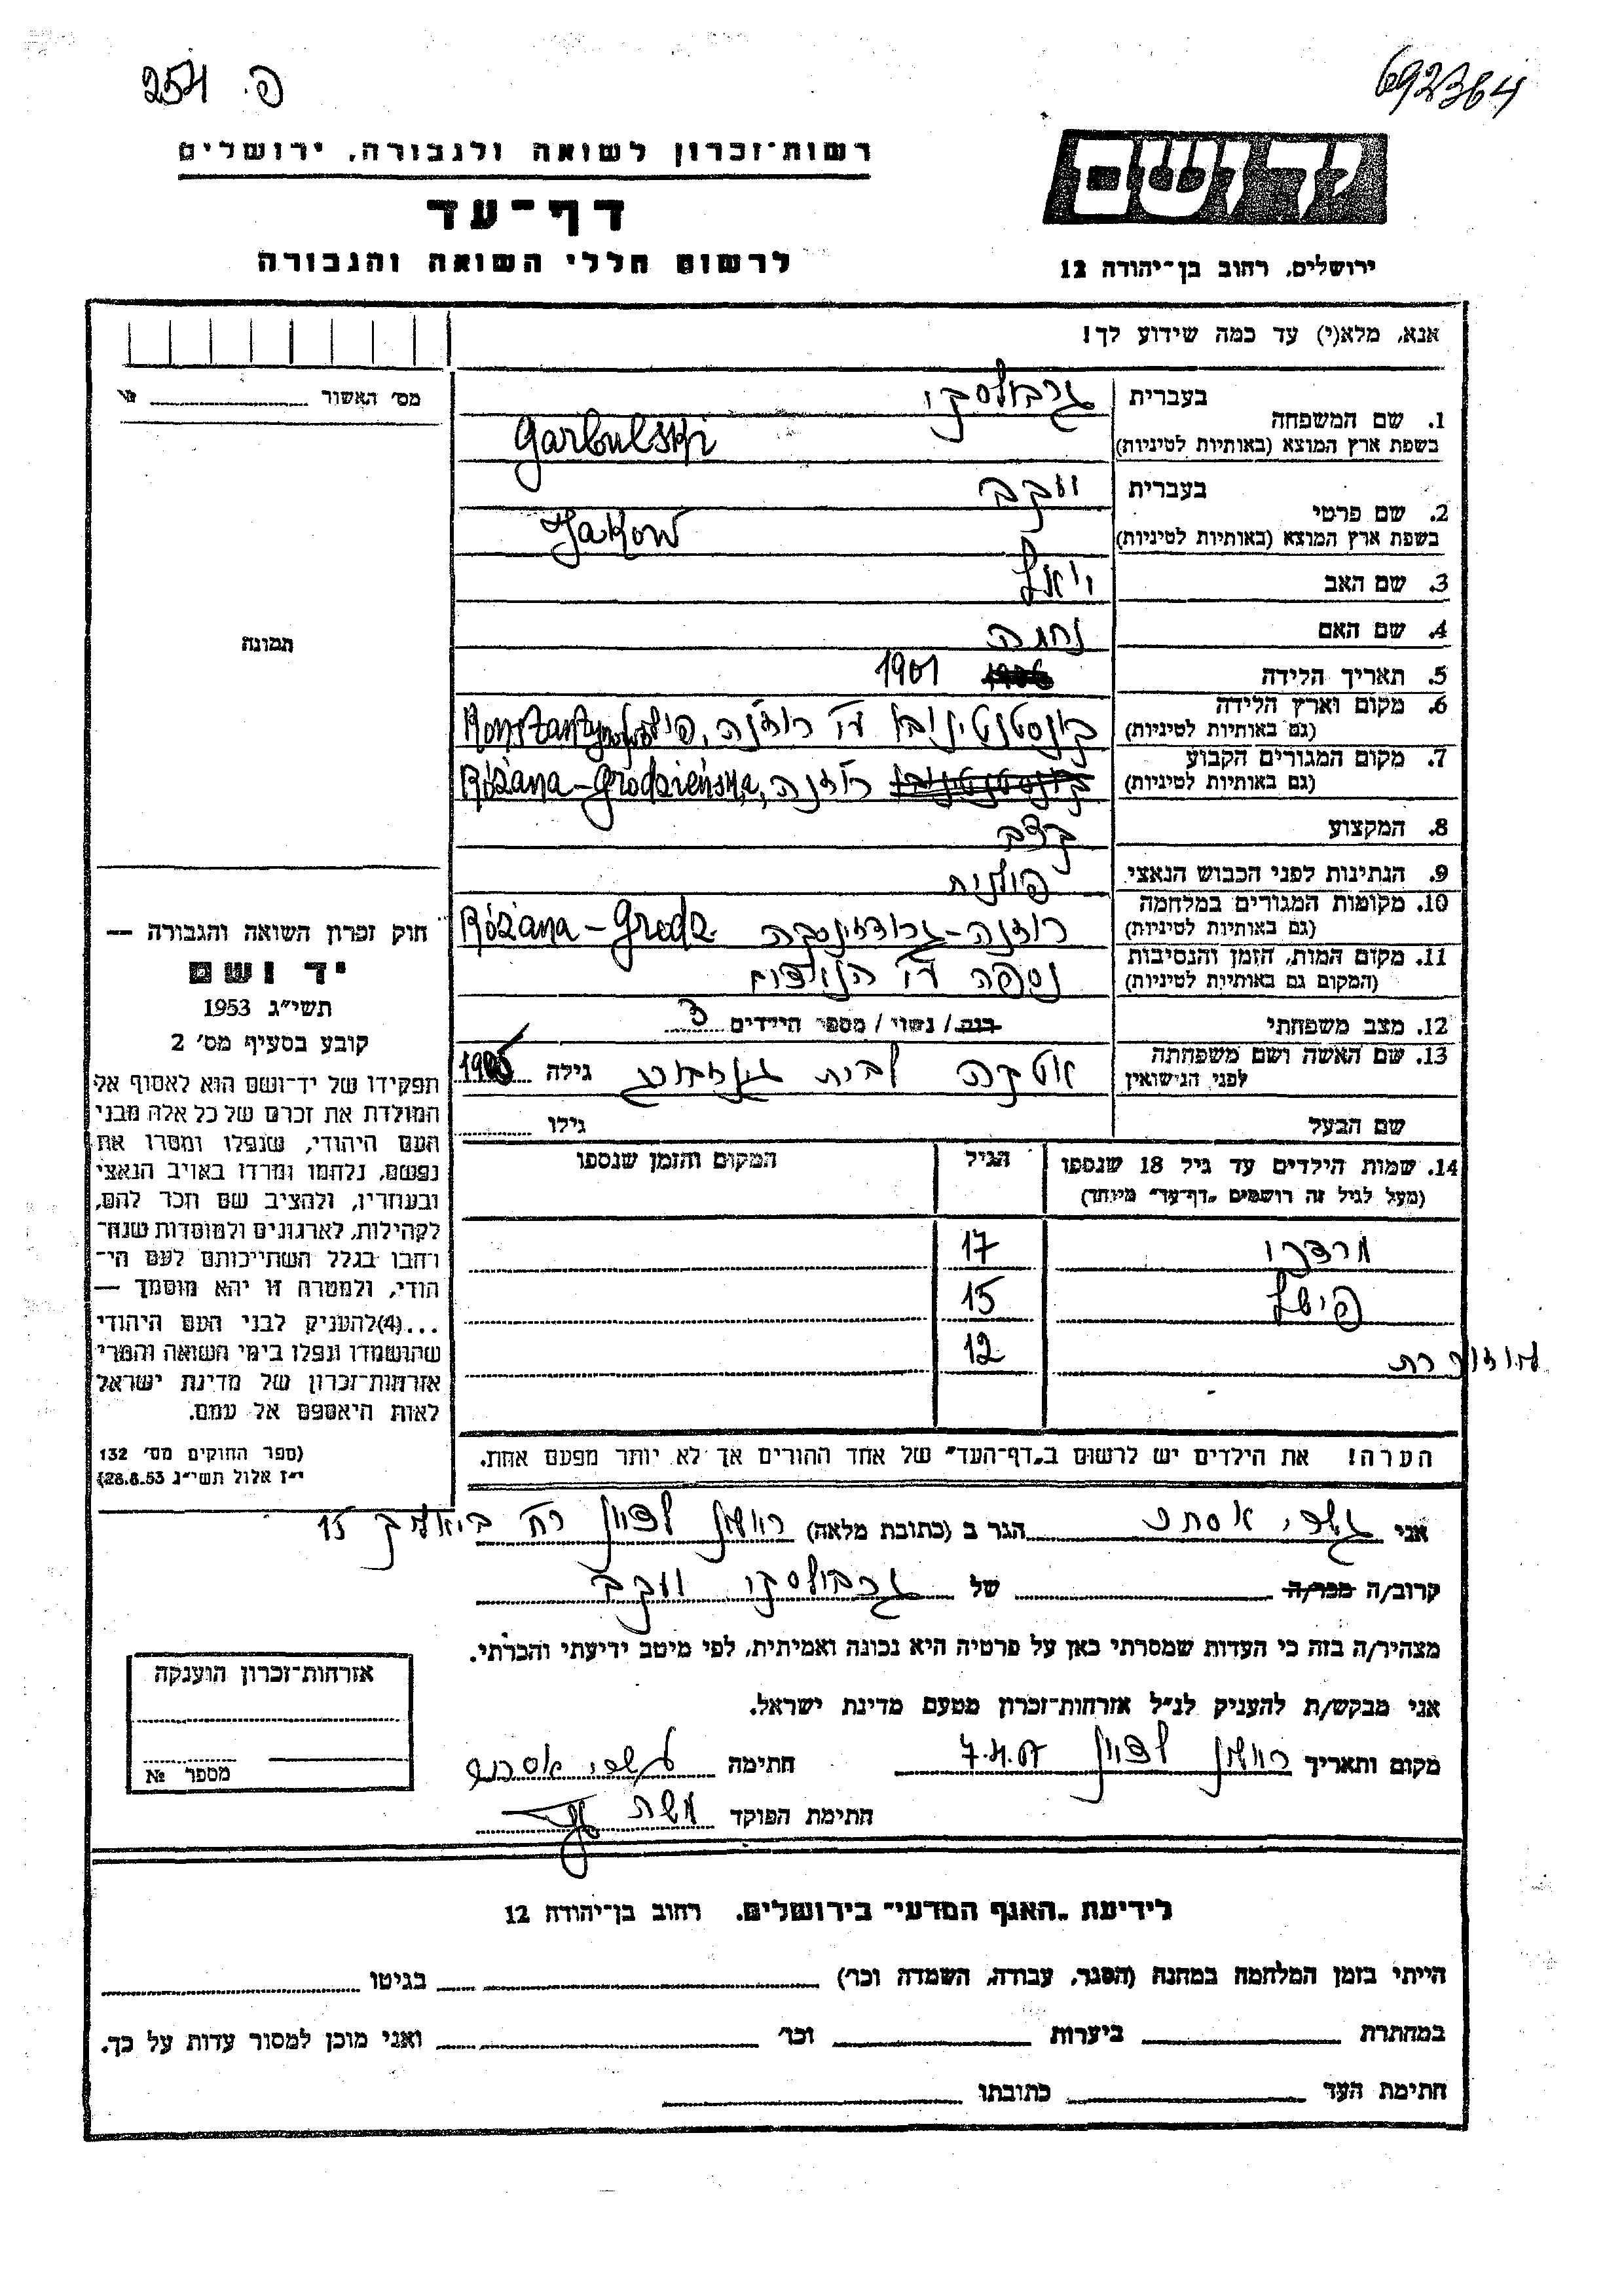 254 פ.
692364
רשות־זכרון לשואה ולגבורה, ירושלים
יד ושם
דף־עד
לרשום חללי השואה והגבורה
ירושלים, רחוב בן־יהודה 12
אנא, מלא(י) עד כמה שידוע לך!
מס׳ האשור
1. שם המשפחה בעברית גרבולסקי
בשפת ארץ המוצא (באותיות לטיניות) Garbulski
2. שם פרטי בעברית יעקב
בשפת ארץ המוצא (באותיות לטיניות) Jakow
3. שם האב יואל
4. שם האם נחמה
5. תאריך הלידה 1901
6. מקום וארץ הלידה
(גם באותיות לטיניות) קונסטנטינובו ע״י רוזנה,
7. מקום המגורים הקבוע
(גם באותיות לטיניות) רוז׳נה, Różana-Grodzieńska
8. המקצוע קצב
9. הנתינות לפני הכבוש הנאצי פולנית
10. מקומות המגורים במלחמה
(גם באותיות לטיניות) רוזנה-גרודזינסקה Różana-Grodz.
11. מקום המות, הזמן והנסיבות
(המקום גם באותיות לטיניות) נספה ע״י הנאצים
12. מצב משפחתי רווק / נשוי / מספר הילדים 3
13. שם האשה ושם משפחתה
לפני הנישואין אטקה לבית גינזבורג גילה
שם הבעל גילו
14. שמות הילדים עד גיל 18 שנספו
(מעל לגיל זה רושמים „דף־עד״ מיוחד)
הגיל
המקום והזמן שנספו
מרדכי 17
פישל 15
12
הערה! את הילדים יש לרשום ב„דף־העד״ של אחד ההורים אך לא יותר מפעם אחת.
תמונה
חוק זכרון השואה והגבורה —
יד ושם
תשי״ג 1953
קובע בסעיף מס׳ 2
תפקידו של יד־ושם הוא לאסוף אל
המולדת את זכרם של כל אלה מבני
העם היהודי, שנפלו ומסרו את
נפשם, נלחמו ומרדו באויב הנאצי
ובעוזריו, ולהציב שם וזכר להם,
לקהילות, לארגונים ולמוסדות שנח־
רבו בגלל השתייכותם לעם הי־
הודי, ולמטרה זו יהא מוסמך —
...(4)להעניק לבני העם היהודי
שהושמדו ונפלו בימי השואה והמרי
אזרחות־זכרון של מדינת ישראל
לאות היאספם אל עמם.
(ספר החוקים מס׳ 132
י״ז אלול תשי״ג 28.8.53)
אני אסתר הגר ב (כתובת מלאה) ראשון לציון רח׳ ביאליק 15
קרוב/ה מכר/ה של גרבולסקי יעקב
מצהיר/ה בזה כי העדות שמסרתי כאן על פרטיה היא נכונה ואמיתית, לפי מיטב ידיעתי והכרתי.
אני מבקש/ת להעניק לנ״ל אזרחות־זכרון מטעם מדינת ישראל.
מקום ותאריך ראשון לציון חתימה אסתר
חתימת הפוקד
אזרחות־זכרון הוענקה
מספר №
לידיעת „האגף המדעי״ בירושלים, רחוב בן־יהודה 12
הייתי בזמן המלחמה במחנה (הסגר, עבודה, השמדה וכו׳) בגיטו
במחתרת ביערות וכו׳ ואני מוכן למסור עדות על כך.
חתימת העד כתובתו